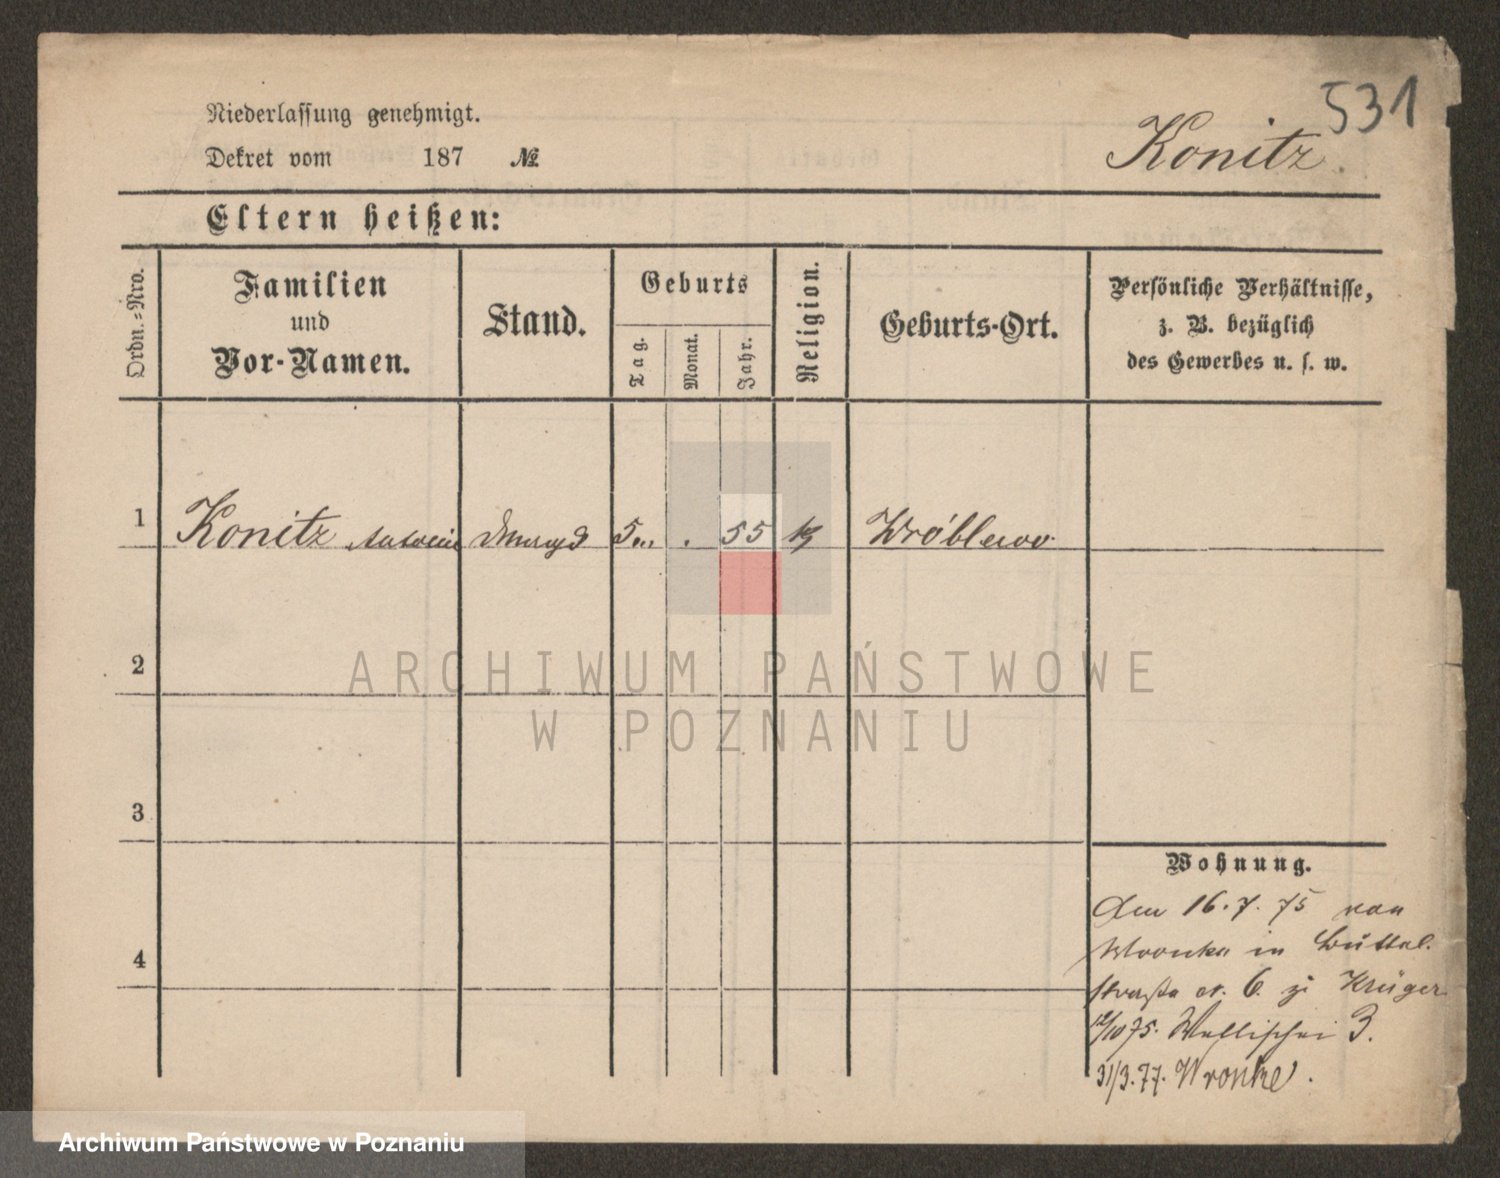 531
Niederlassung genehmigt.
Konitz.
Dekret vom 187 №
Eltern heißen:
Ordn.-Nro.
Familien
und
Vor-Namen.
Stand.
Geburts
Tag.
Monat.
Jahr.
Religion.
Geburts-Ort.
Persönliche Verhältnisse,
z. B. bezüglich
des Gewerbes u. s. w.
1 Konitz 55 Wróblewo
2
3
4
Wohnung.
Am 16.7.75 von
Wronke in Büttel-
straße N. 6. zu Krüger
12/10 75. Wallischei 3.
31/3.77. Wronke.
ARCHIWUM PAŃSTWOWE
W POZNANIU
Archiwum Państwowe w Poznaniu